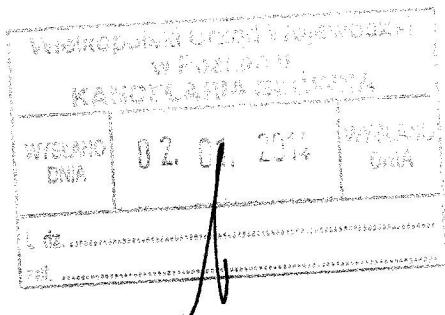 Wielkopolski Urząd Wojewódzki
w Poznaniu
KANCELARIA GŁÓWNA
WYSŁANO
DNIA
02. 01. 2014
WYSŁANO
DNIA
L. dz.
zał.